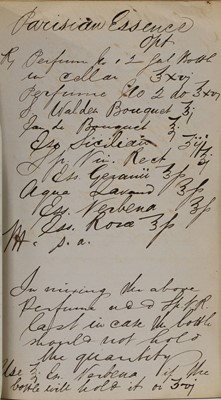 Parisian Essence
Opt
℞ Perfume No 1 2 Gal Bottle
in cellar ℥xvj
Perfume No 2 do ℥xvj
Walden Bouquet ℥j
Bouquet ℥
Sicilian ℥ij
Sp. Vin. Rect
Ess. Geranii ℥ß
Aqua Lavand ℥ß
Ess. Verbena ℥ß
Ess. Rosae ℥ß
M. s. a.
In mixing the above
Perfume add Sp. V. R.
last in case the bottle
would not hold
the quantity
Use ℥ Es. Verbena if the
bottle will hold it or